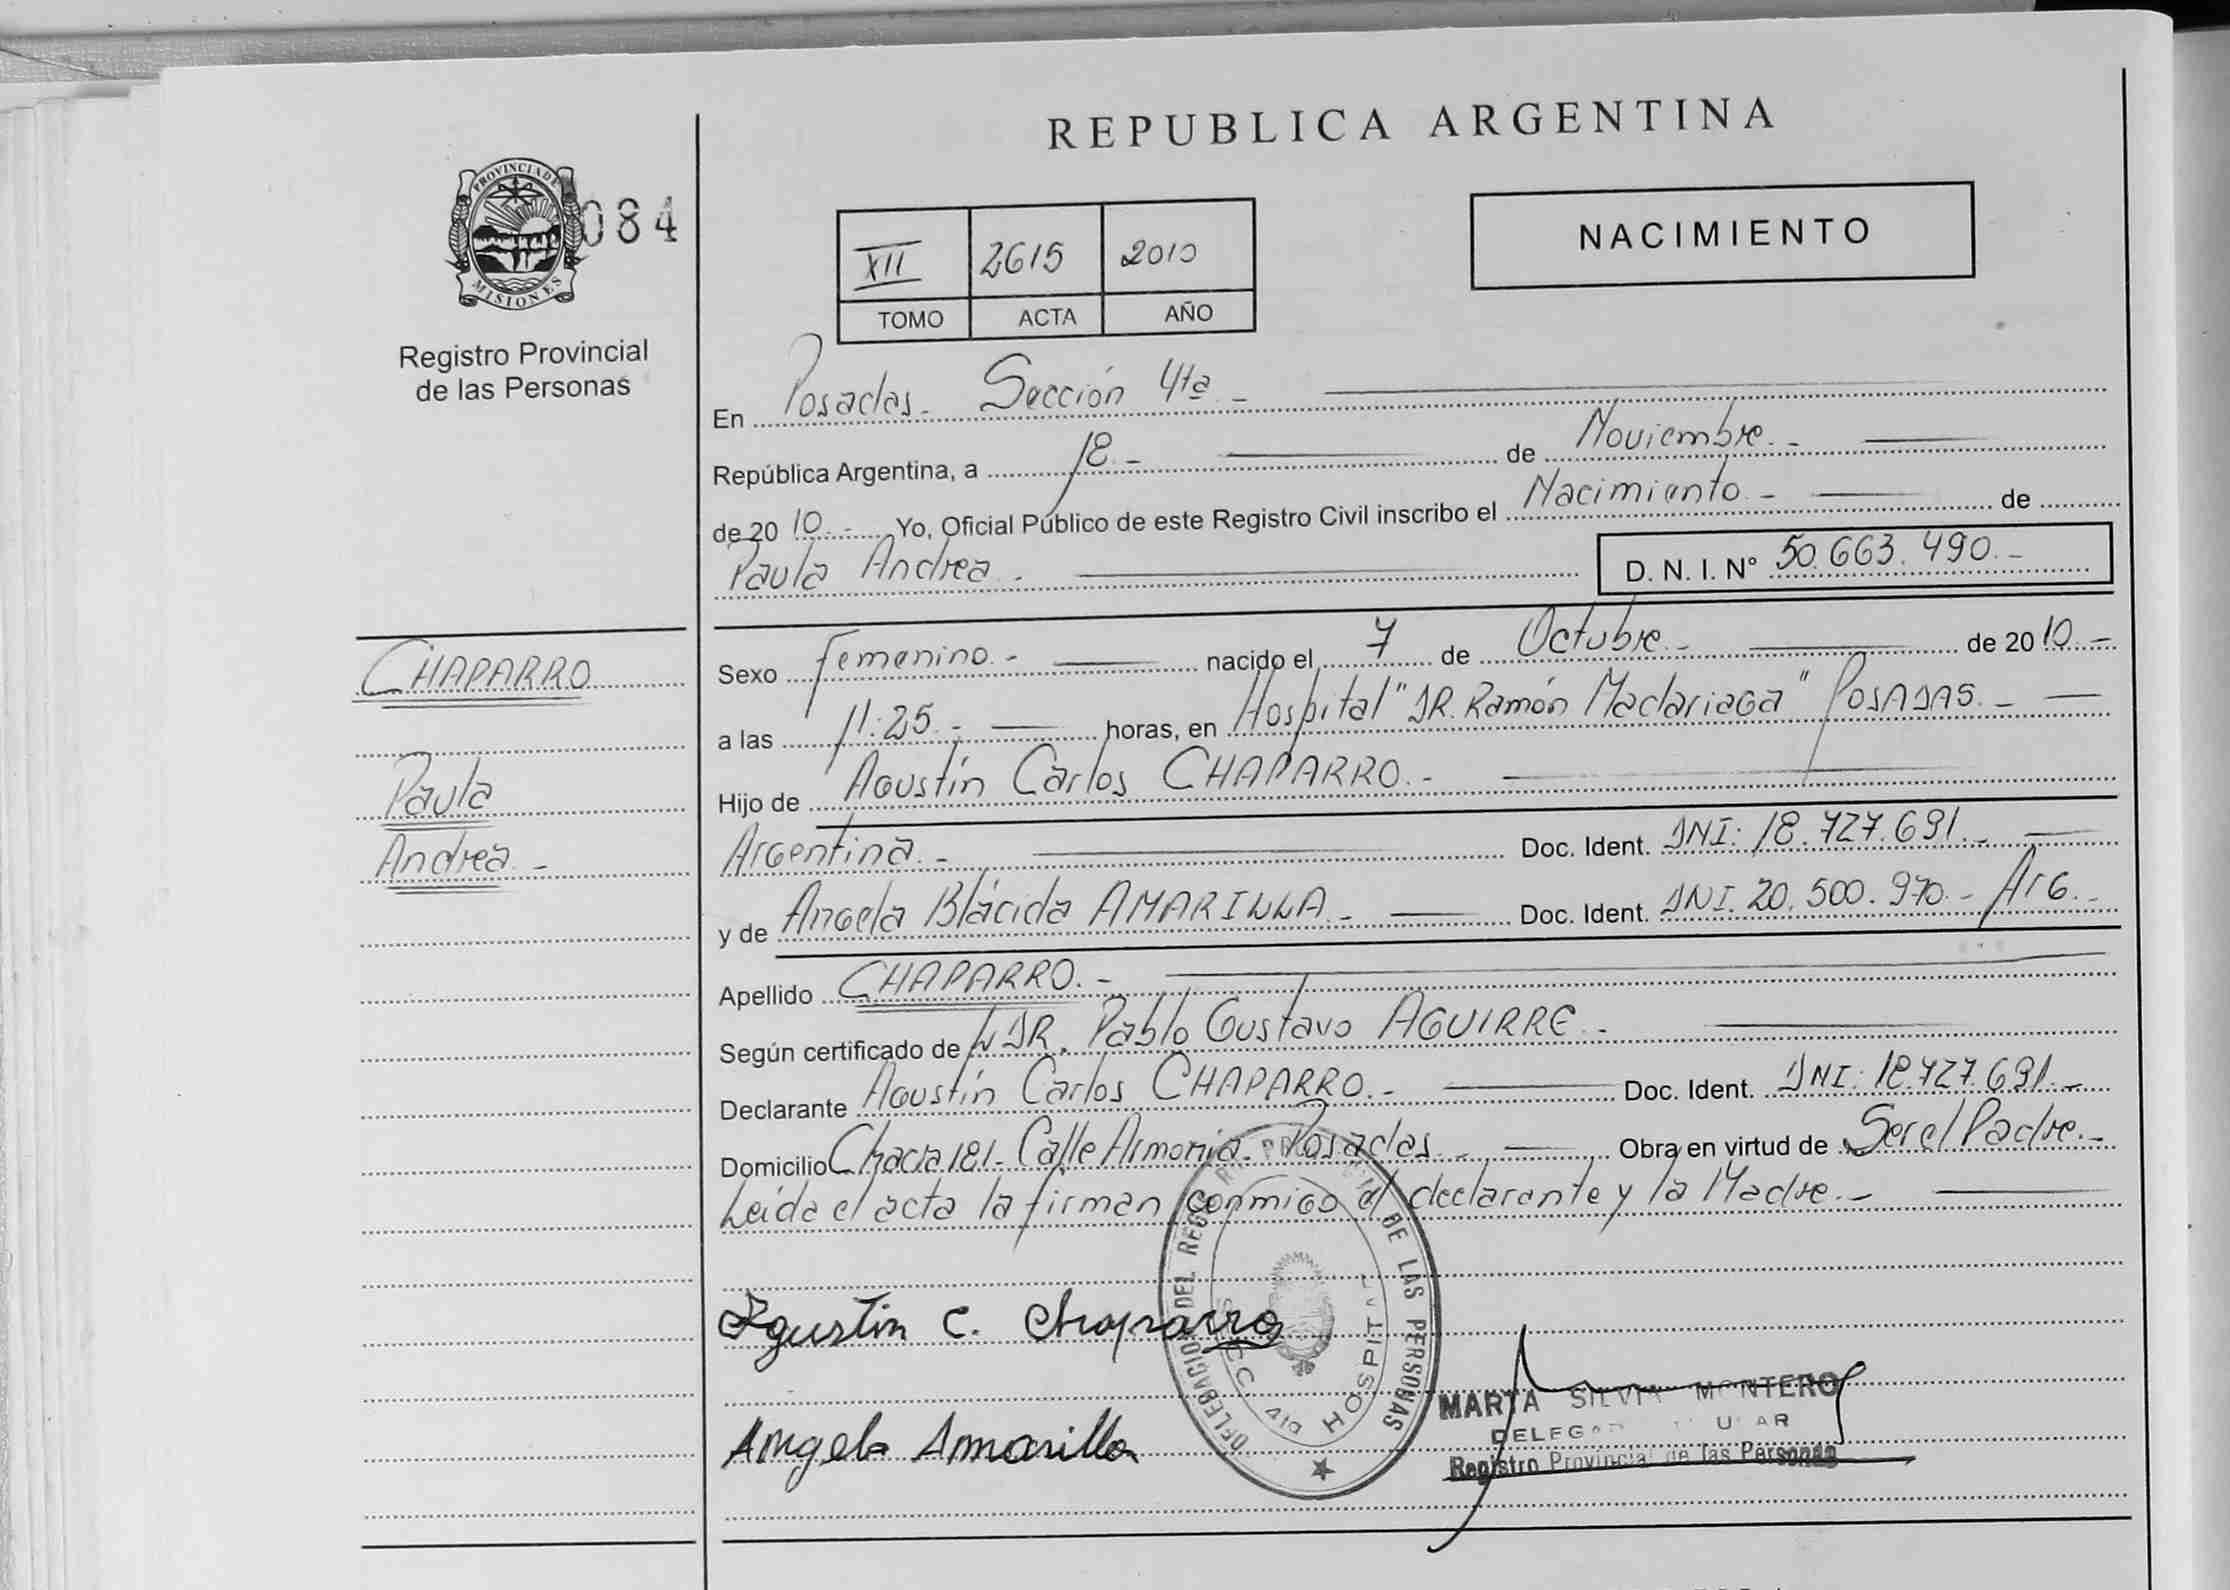 REPUBLICA ARGENTINA
PROVINCIA DE
MISIONES
084
Registro Provincial
de las Personas
XII 2615 2010
TOMO ACTA AÑO
NACIMIENTO
En Posadas - Sección 4ta. -
República Argentina, a 18. - de Noviembre. -
de 2010. - Yo, Oficial Público de este Registro Civil inscribo el Nacimiento - de
Paula Andrea. D. N. I. Nº 50.663.490. -
CHAPARRO
Paula
Andrea -
Sexo Femenino. - nacido el 7 de Octubre. - de 2010. -
a las 11:25. - horas, en Hospital "DR. Ramón Madariaga" POSADAS. -
Hijo de Agustín Carlos CHAPARRO. -
Argentina. - Doc. Ident. DNI: 18.727.691. -
y de Angela Blácida AMARILLA. - Doc. Ident. DNI. 20.500.970. - Arg. -
Apellido CHAPARRO. -
Según certificado de DR. Pablo Gustavo AGUIRRE. -
Declarante Agustín Carlos CHAPARRO. - Doc. Ident. DNI: 18.727.691. -
Domicilio Chacra 181 - Calle Armonia - Posadas. - Obra en virtud de Ser el Padre. -
Leída el acta la firman conmigo el declarante y la Madre. -
Agustin C. Chaparro
Angela Amarilla
DELEGACION DEL REGISTRO PROVINCIAL DE LAS PERSONAS
SECC 4ta HOSPITAL
MARTA SILVIA MONTERO
DELEGADA TITULAR
Registro Provincial de las Personas